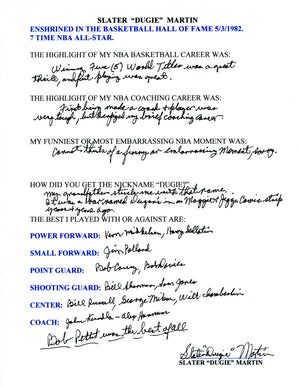 SLATER "DUGIE" MARTIN
ENSHRINED IN THE BASKETBALL HALL OF FAME 5/3/1982.
7 TIME NBA ALL-STAR.
THE HIGHLIGHT OF MY NBA BASKETBALL CAREER WAS:
Winning Five (5) World Titles was a great
thrill, and just playing was great.
THE HIGHLIGHT OF MY NBA COACHING CAREER WAS:
First being made a coach & player was
very tough, but enjoyed my brief coaching career.
MY FUNNIEST OR MOST EMBARRASSING NBA MOMENT WAS:
Cannot think of a funny or embarrassing Moment, sorry.
HOW DID YOU GET THE NICKNAME "DUGIE"
my grandfather stuck me with that name.
It was a named in Maggie & Jiggs Comic strip
years & years ago.
THE BEST I PLAYED WITH OR AGAINST ARE:
POWER FORWARD: Vern Mikkelsen, Harry Gallatin
SMALL FORWARD: Jim Pollard
POINT GUARD: Bob Cousy, Bob Davies
SHOOTING GUARD: Bill Sharman, Sam Jones
CENTER: Bill Russell, George Mikan, Wilt Chamberlain
COACH: John Kundla - Alex Hannum
Bob Pettit was the best of all
Slater "Dugie" Martin
SLATER "DUGIE" MARTIN